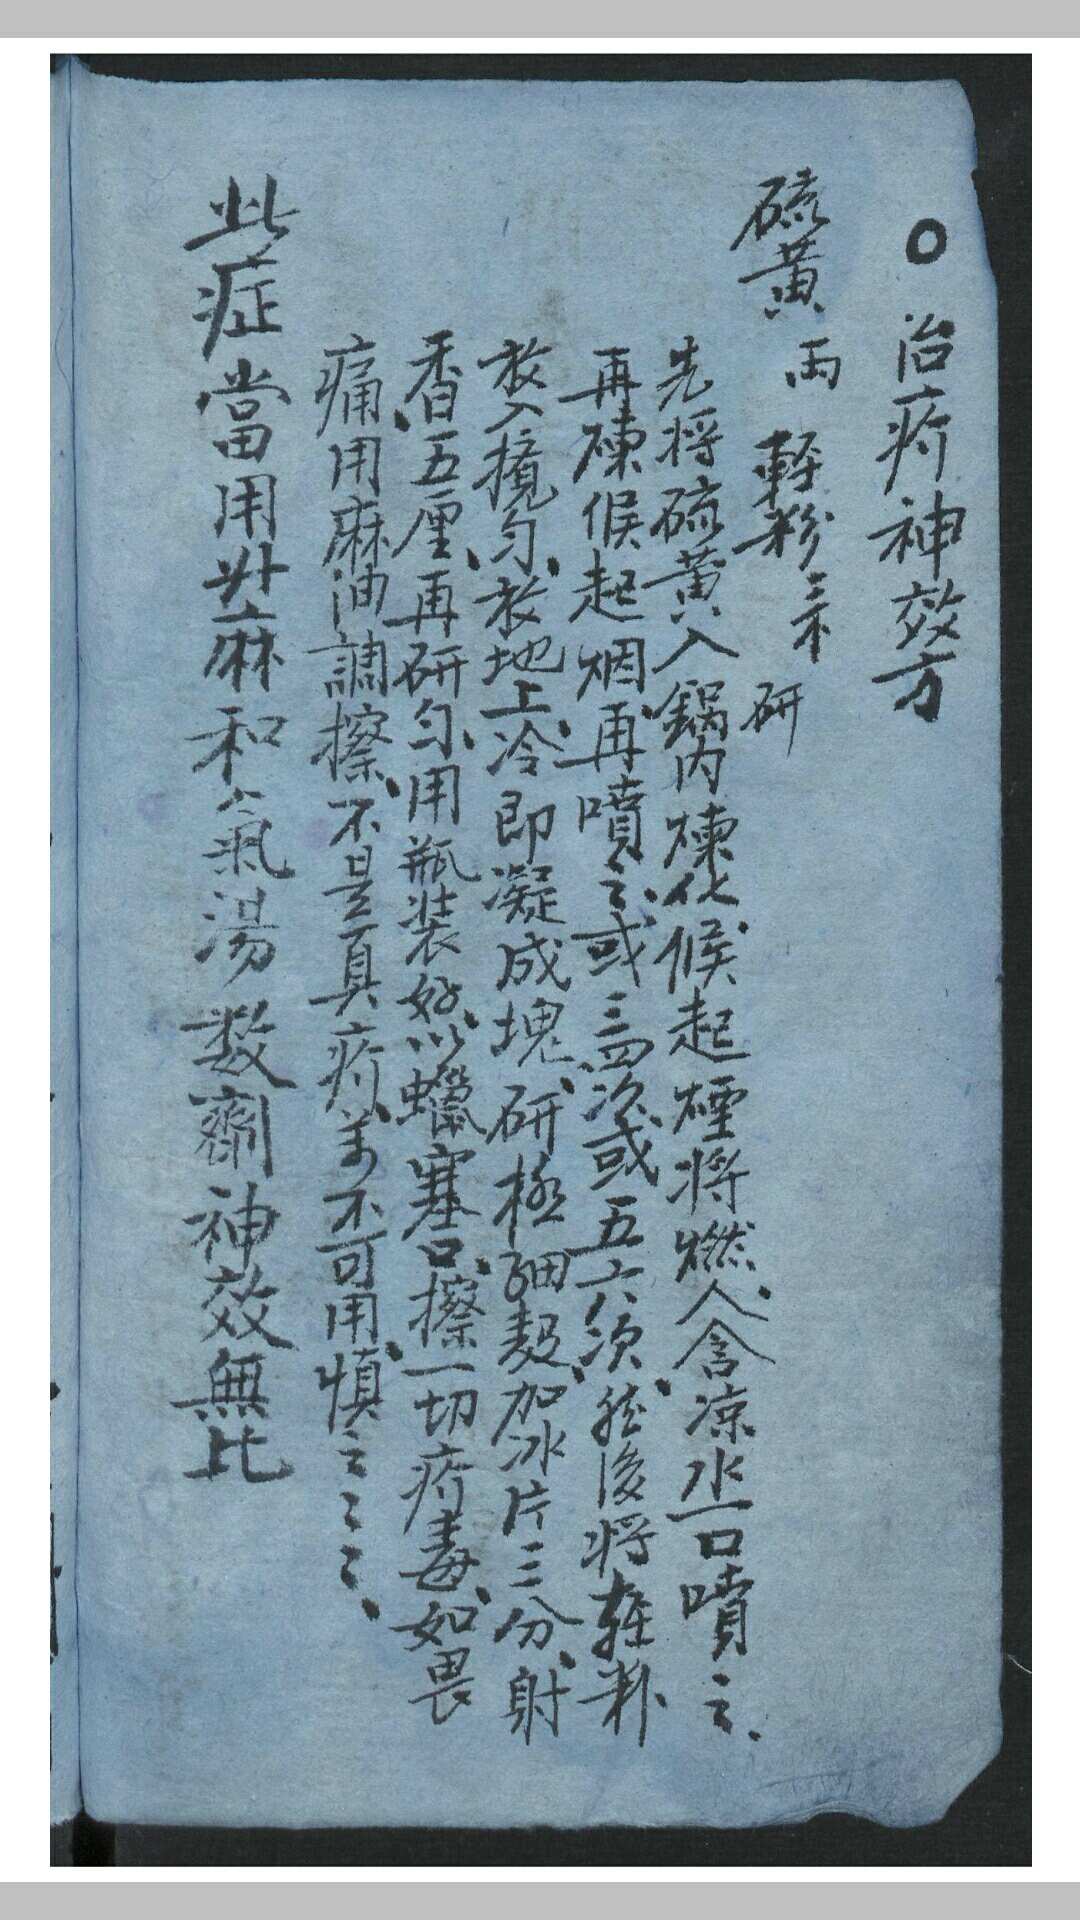 ○ 治疥神效方
硫黃 両 輕粉 三 研
先将硫黃入鍋内煉化候起煙将燃人含凉水一口噴之
再煉候起烟再噴之或三四次或五六次然後将輕粉
放入攪勻放地上冷即凝成塊研極細加冰片三分射
香五厘再研勻用瓶装好以蠟塞口擦一切疥毒如畏
痛用麻油調擦不是真疥萬不可用慎之〻〻
此症當用升麻和氣湯数劑神效無比